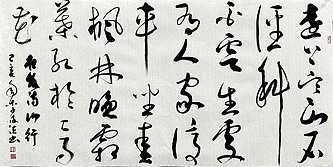 远上寒山石
径斜
白云生处
有人家停
车坐爱
枫林晚霜
叶红于二月
花
杜牧诗山行
己亥年